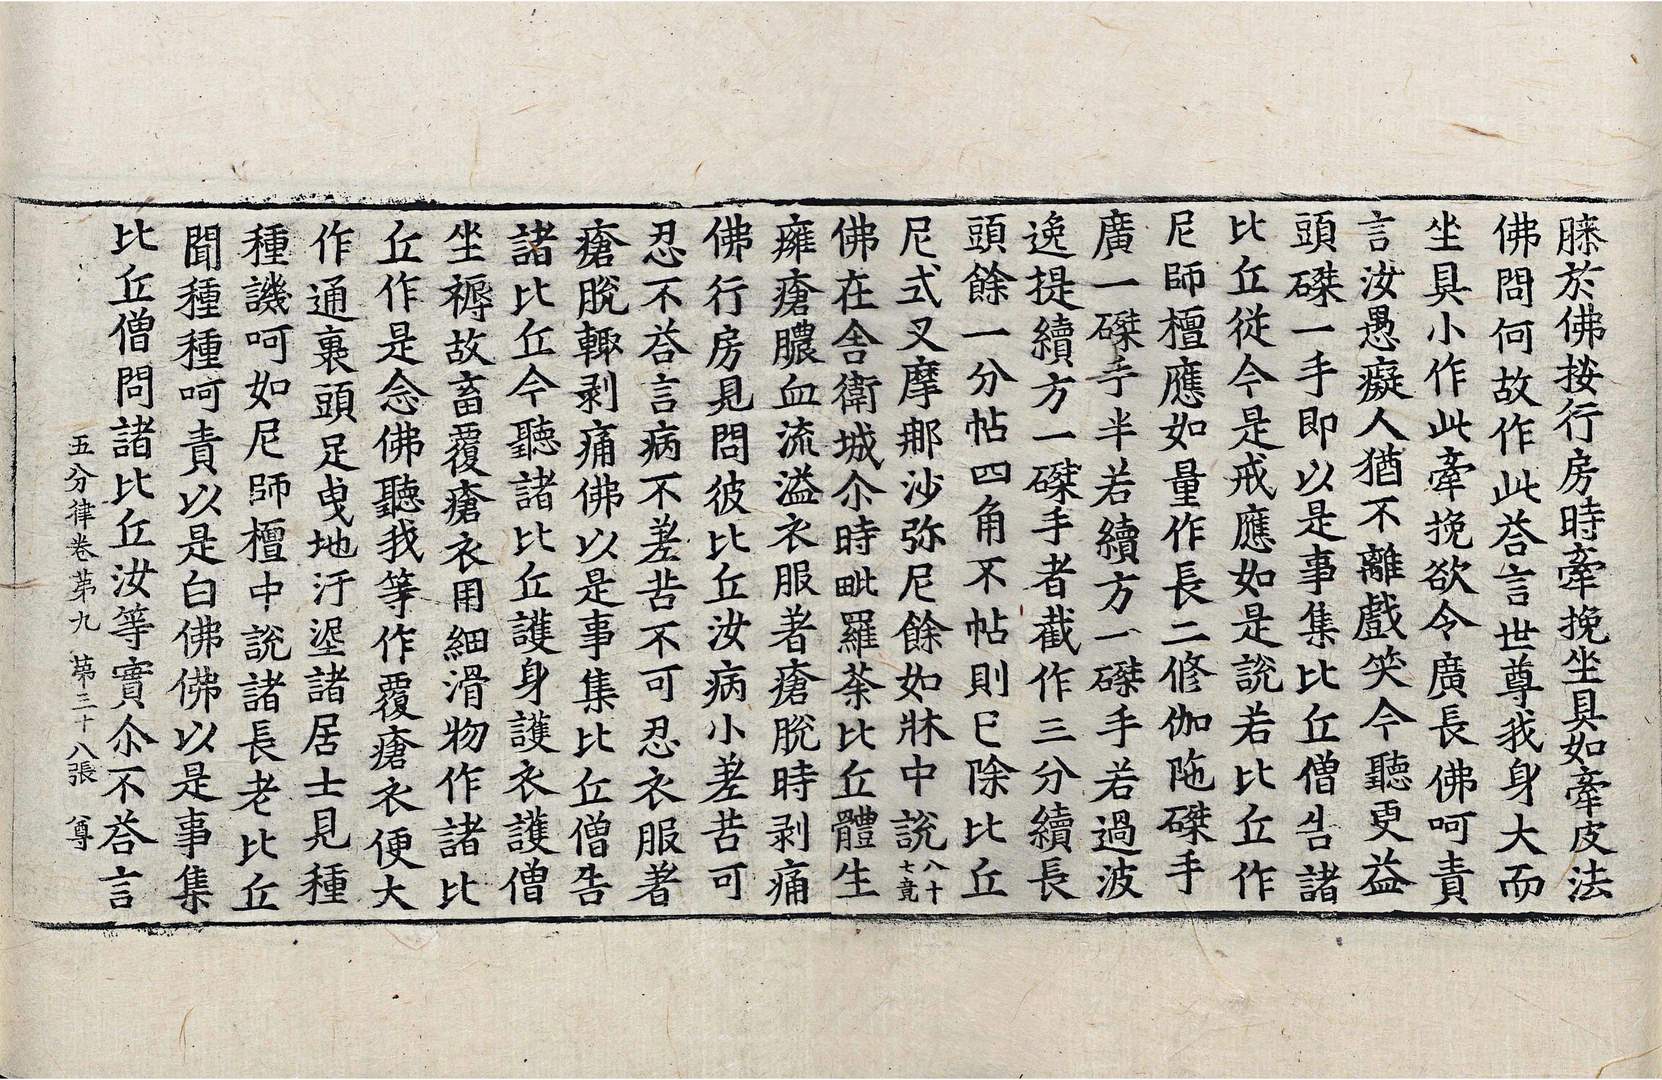 膝於佛按行房時牽挽坐具如牽皮法
佛問何故作此荅言世尊我身大而
坐具小作此牽挽欲令廣長佛呵責
言汝愚癡人猶不離戲笑今聽更益
頭磔一手即以是事集比丘僧告諸
比丘從今是戒應如是說若比丘作
尼師檀應如量作長二修伽陁磔手
廣一磔手半若續方一磔手若過波
逸提續方一磔手者截作三分續長
頭餘一分帖四角不帖則已除比丘
尼式叉摩那沙弥尼餘如牀中說八十七竟
佛在舍衛城尒時毗羅荼比丘體生
癰瘡膿血流溢衣服著瘡脫時剥痛
佛行房見問彼比丘汝病小差苦可
忍不荅言病不差苦不可忍衣服著
瘡脫輙剥痛佛以是事集比丘僧告
諸比丘今聽諸比丘護身護衣護僧
坐褥故畜覆瘡衣用細滑物作諸比
丘作是念佛聽我等作覆瘡衣便大
作通裹頭足曳地汙埿諸居士見種
種譏呵如尼師檀中說諸長老比丘
聞種種呵責以是白佛佛以是事集
比丘僧問諸比丘汝等實尒不荅言
五分律卷第九 第三十八張 尊